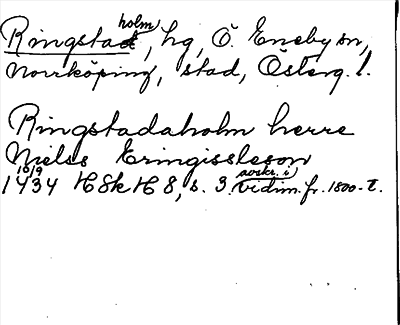 Ringstadholm, hg, Ö. Eneby sn,
Norrköping, stad, Österg. l.
Ringstadaholm herre
Niels Eringissleson
10/9 1434 HSkH 8, s. 3. avskr. i vidim. fr. 1800-t.